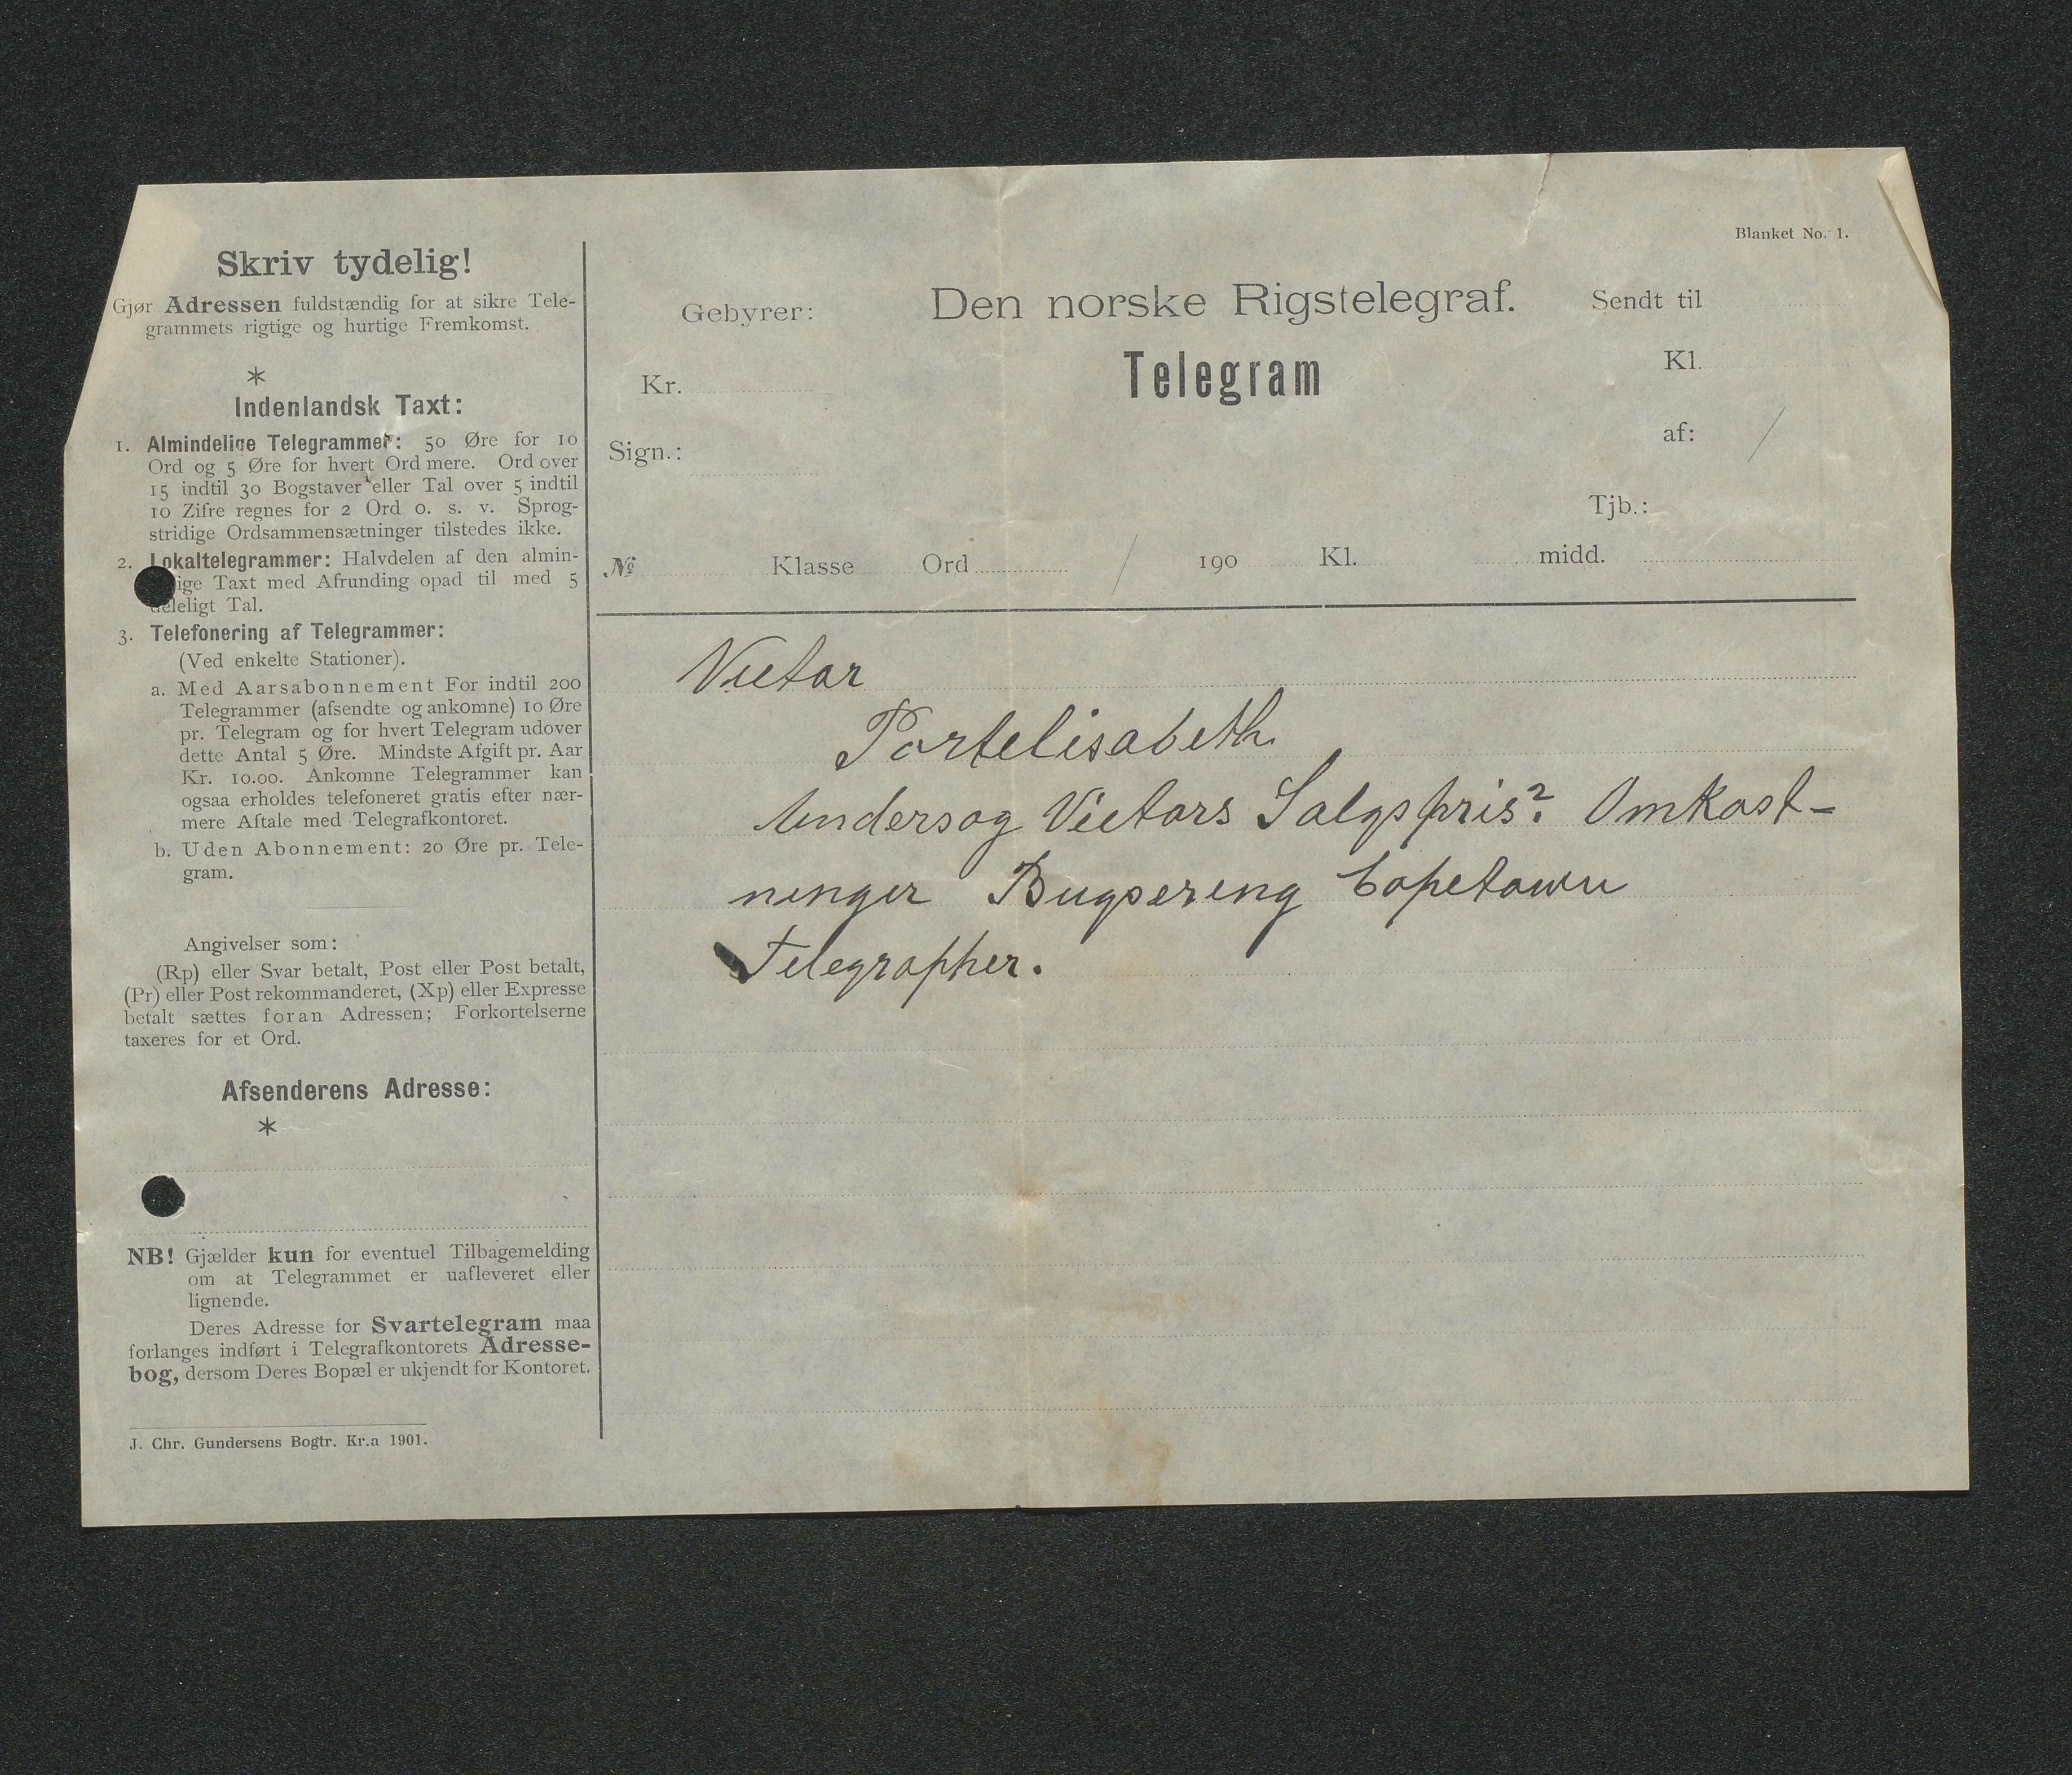 Skriv tydelig!
Gjør Adressen fuldstændig for at sikre Tele-
grammets rigtige og hurtige Fremkomst.
*
Indenlandsk Taxt:
1. Almindelige Telegrammer: 50 Øre for 10
Ord og 5 Øre for hvert Ord mere. Ord over
15 indtil 30 Bogstaver eller Tal over 5 indtil
10 Zifre regnes for 2 Ord o. s. v. Sprog-
stridige Ordsammensætninger tilstedes ikke.
2. Lokaltelegrammer: Halvdelen af den almin-
ige Taxt med Afrunding opad til med 5
deleligt Tal.
3. Telefonering af Telegrammer:
(Ved enkelte Stationer).
a. Med Aarsabonnement For indtil 200
Telegrammer (afsendte og ankomne) 10 Øre
pr. Telegram og for hvert Telegram udover
dette Antal 5 Øre. Mindste Afgift pr. Aar
Kr. 10.00. Ankomne Telegrammer kan
ogsaa erholdes telefoneret gratis efter nær-
mere Aftale med Telegrafkontoret.
b. Uden Abonnement: 20 Øre pr. Tele-
gram.
Angivelser som:
(Rp) eller Svar betalt, Post eller Post betalt,
(Pr) eller Post rekommanderet, (Xp) eller Expresse
betalt sættes foran Adressen; Forkortelserne
taxeres for et Ord.
Afsenderens Adresse:
*
NB! Gjælder kun for eventuel Tilbagemelding
om at Telegrammet er uafleveret eller
lignende.
Deres Adresse for Svartelegram maa
forlanges indført i Telegrafkontorets Adresse-
bog, dersom Deres Bopæl er ukjendt for Kontoret.
J. Chr. Gundersens Bogtr. Kr.a 1901.
Blanket No. 1.
Gebyrer: Den norske Rigstelegraf. Sendt til
Kr. Telegram Kl.
Sign.: af: /
Tjb.:
№ Klasse Ord / 190 Kl. midd.
Victor
Portelisabeth
Undersøg Victors Salgspris? Omkost-
ninger Bugsering Capetown
Telegrapher.